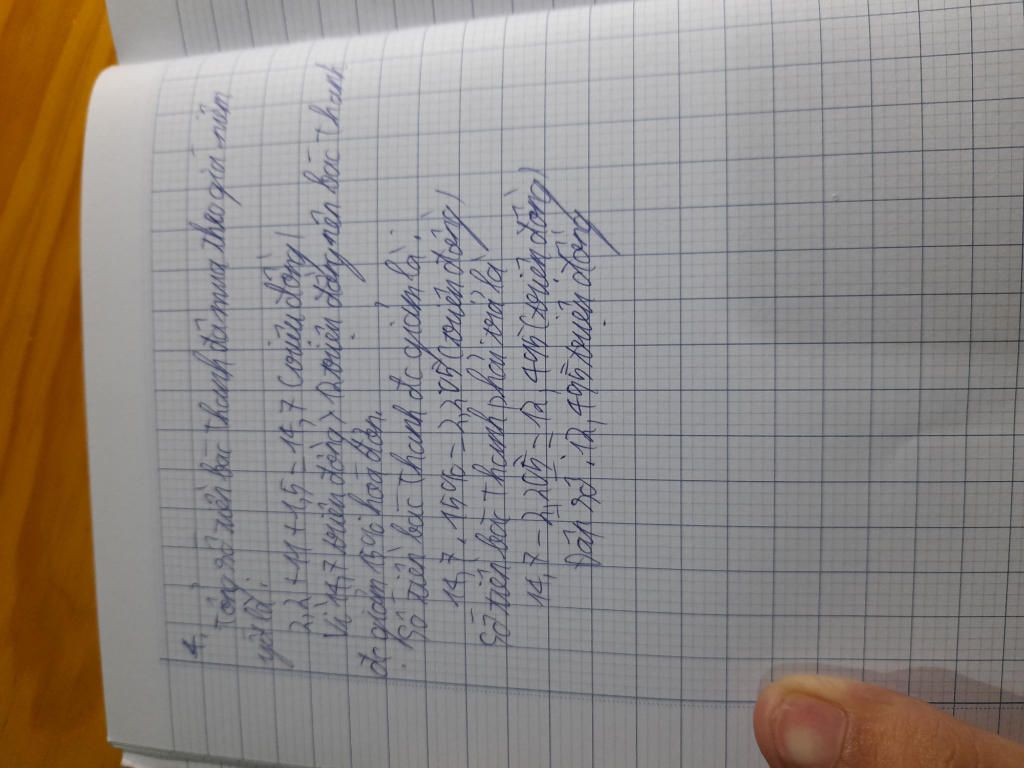 4,
Tổng số tiền bác Thanh đã mua theo giá niêm
yết là:
2,2 + 11 + 1,5 = 14,7 (triệu đồng)
Vì 14,7 triệu đồng > 12 triệu đồng nên bác Thanh
đc giảm 15% hoá đơn.
Số tiền bác Thanh đc giảm là:
14,7 . 15% = 2,205 (triệu đồng)
Số tiền bác Thanh phải trả là
14,7 - 2,205 = 12,495 (triệu đồng)
Đáp số: 12,495 triệu đồng